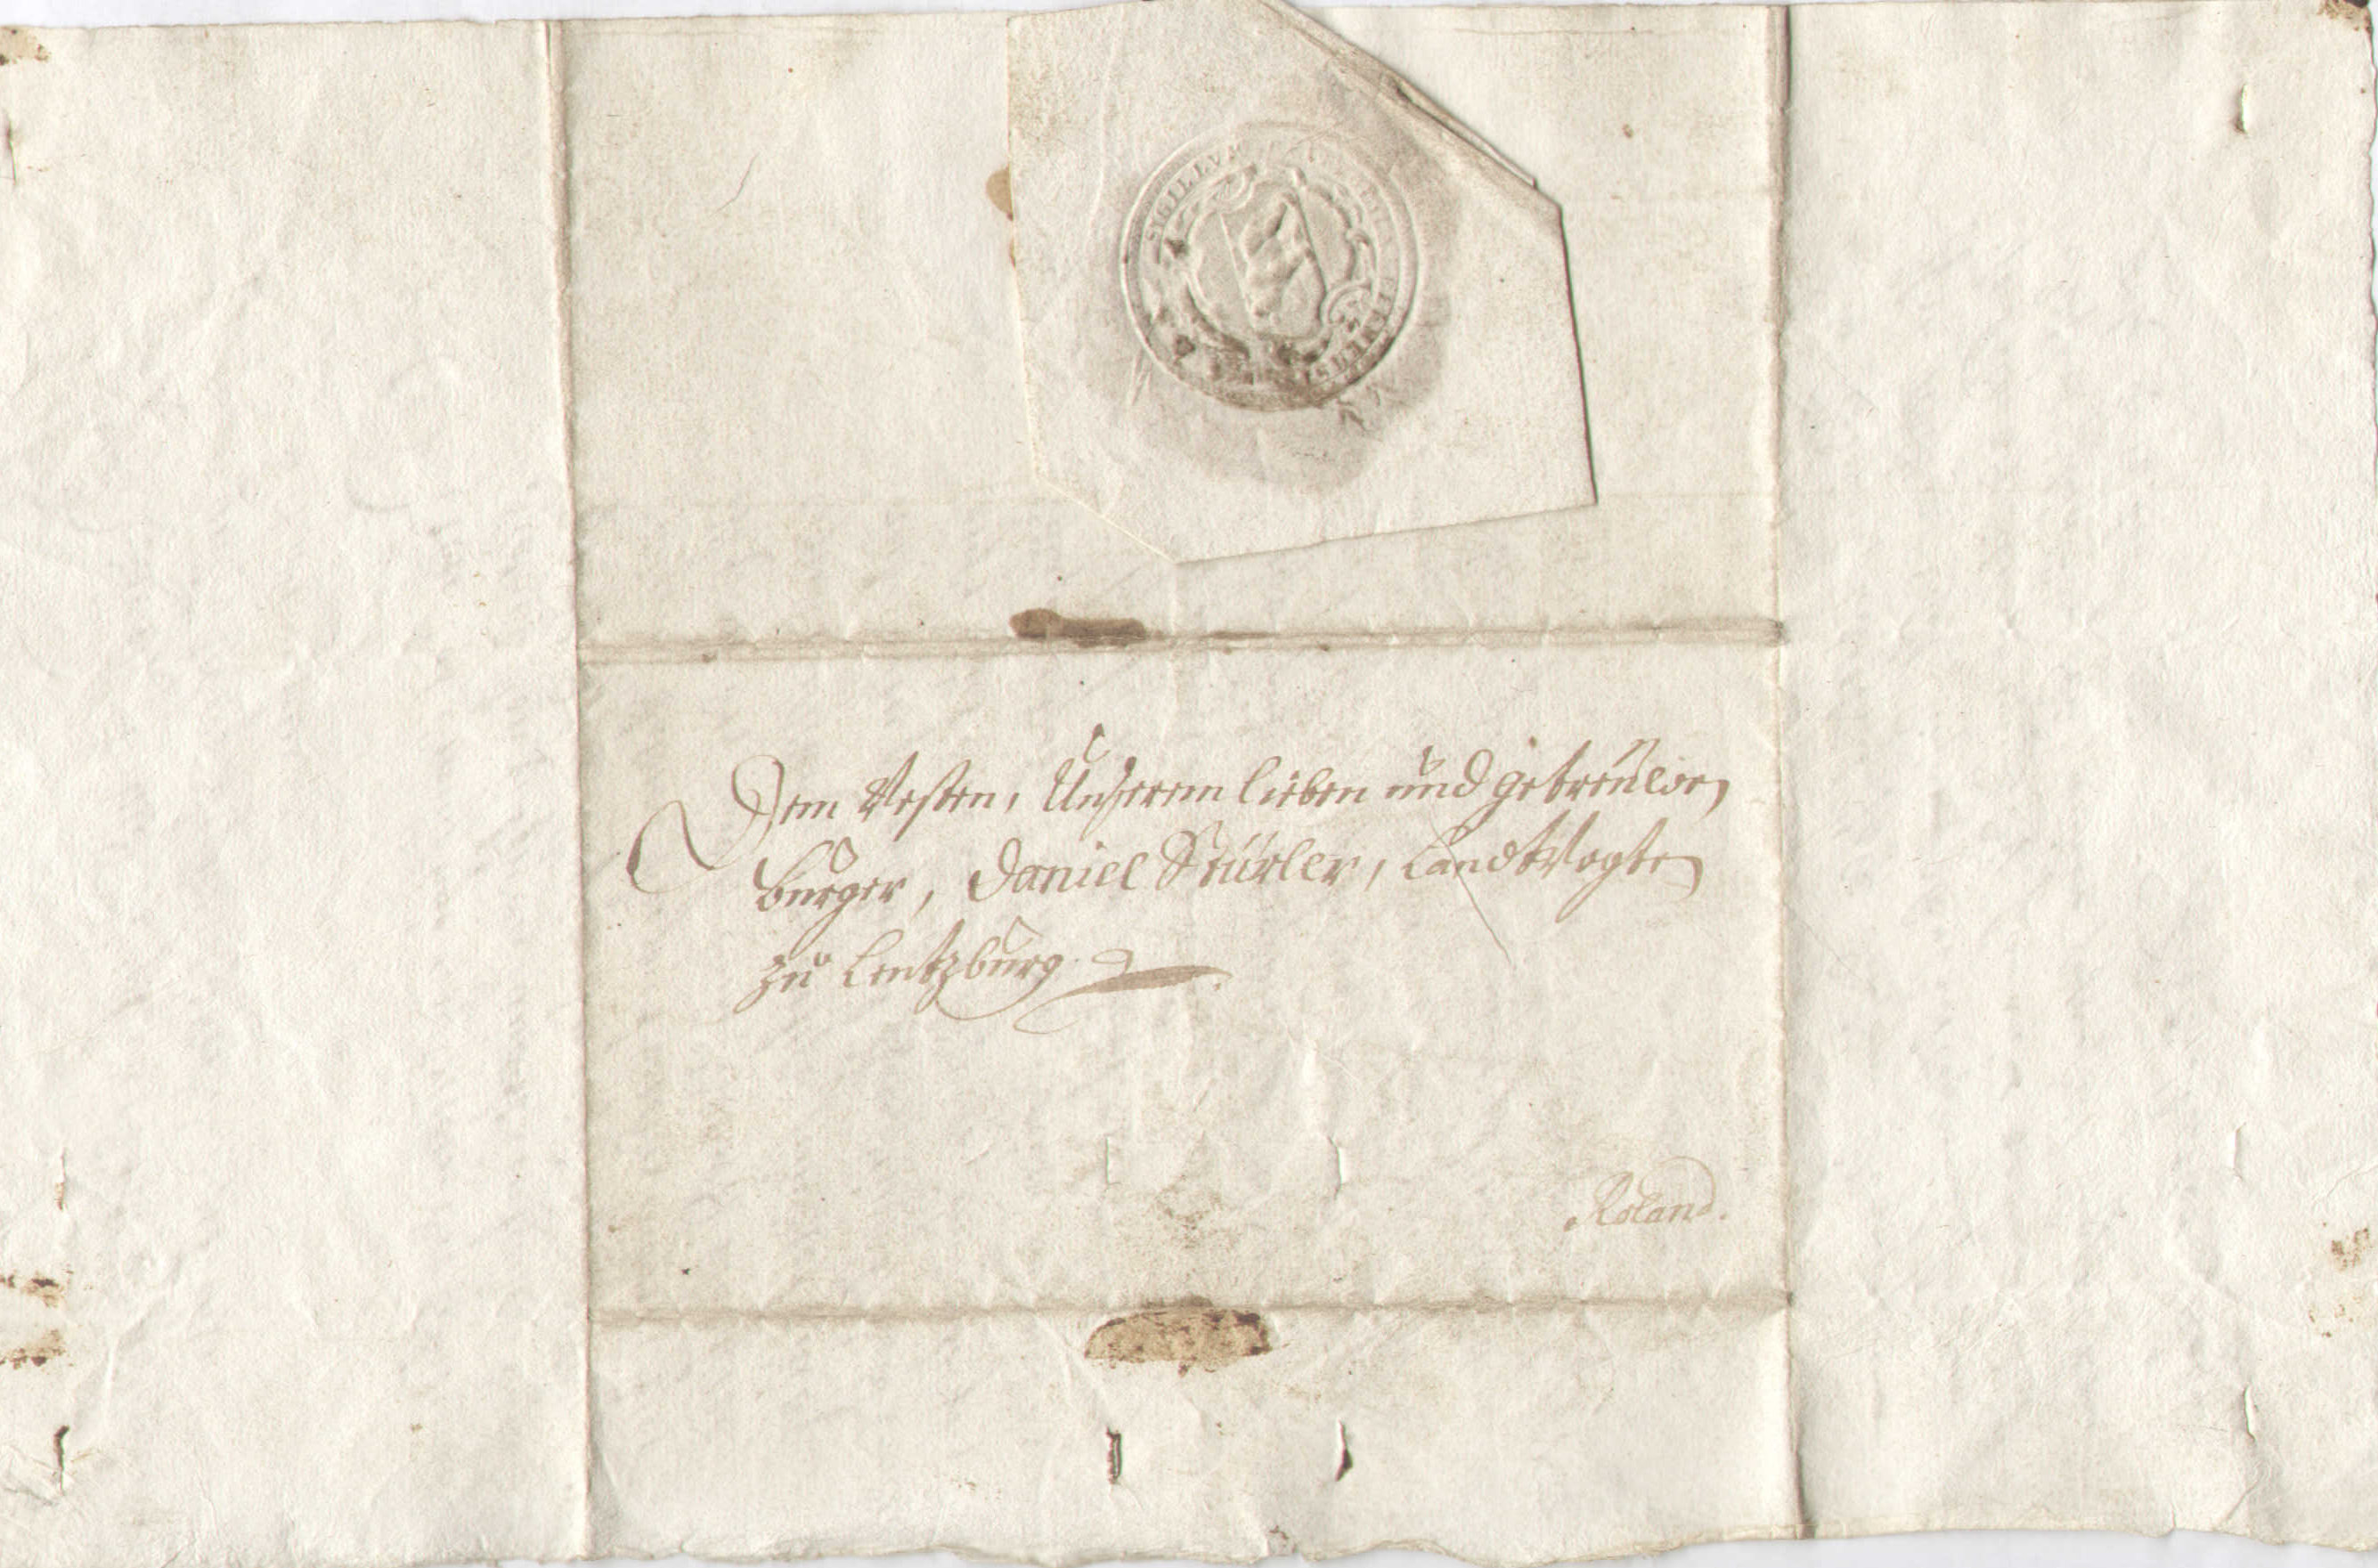 SIGILLVM
Dem Vesten, Unserem lieben und getreüwen
burger, Daniel Stürler, Landtvogten
zu Lentzburg.
Roland.